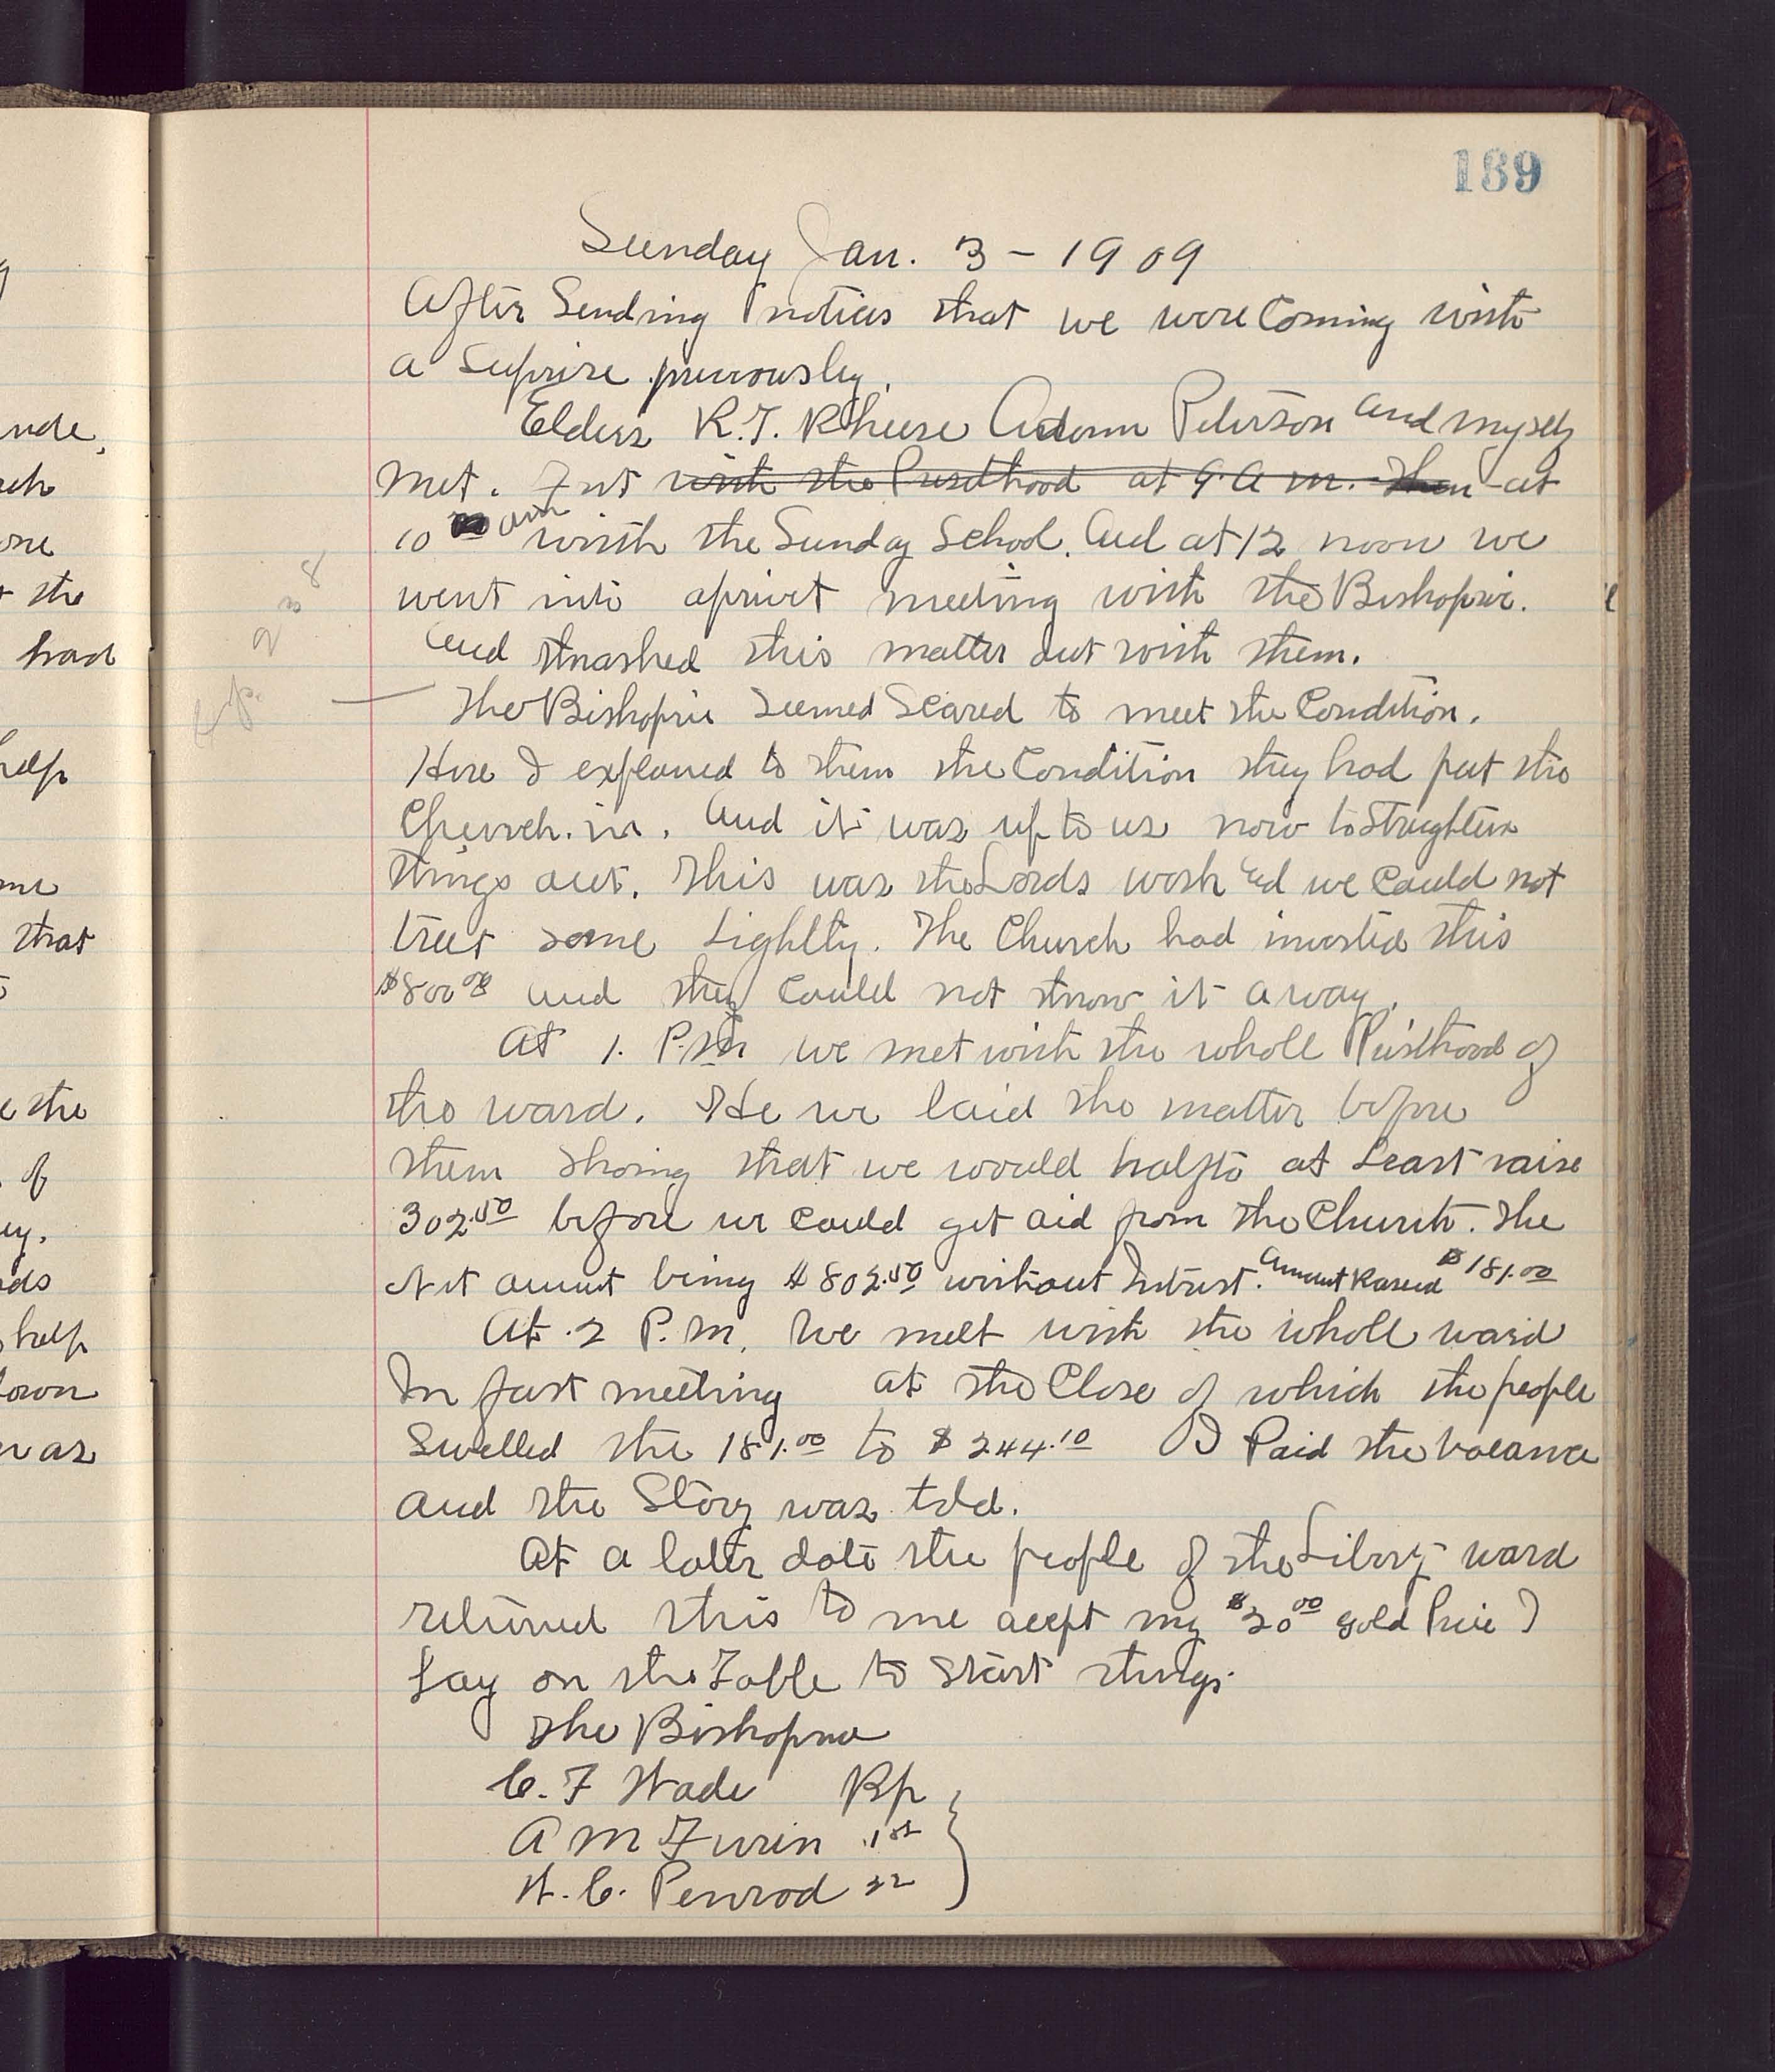 189
Sunday Jan. 3 - 1909
After Sending notices that we were Coming with
a Suprise previously.
Elders R. T. Rheese Adam Peterson and myself
met. Furst with the Preasthood at 9. A m. then at
10 am with the Sunday School. And at 12 noon we
went into aprivet meeting with the Bishopric.
and thrashed this matter out with them.
The Bishopric Seemed Scared to meet the Condition.
Here I explaned to them the Condition they had put the
Church. in. And it was up to us now to Straghten
things out. This was the Lords work and we Could not
treet some Lightly. The Church had invested this
$800.00 and they Could not throw it away.
At 1. P.M we met with the whole Preisthood of
the ward. He we laid the matter before
them Shoing that we would hafto at Least raise
302.50 before we Could get aid from the Church. The
Net amunt being $802.50 without Intrest. Amunt Rased $181.00
At 2 P. M, We meet with the whole ward
In fast meeting at the Close of which the people
Swelled the 181.00 to $244.10 I Paid the balance
and the Story was told.
At a later date the people of the Librty ward
returned this to me acept my $20.00 gold Peice I
Lay on the Table to Start things.
The Bishopric
C. F Wade Bp
A M Furin 1st
W. C. Penrod 2n
nde,
ch
one
the
had
help
me
that
the
of
ey.
ds
help
town
was